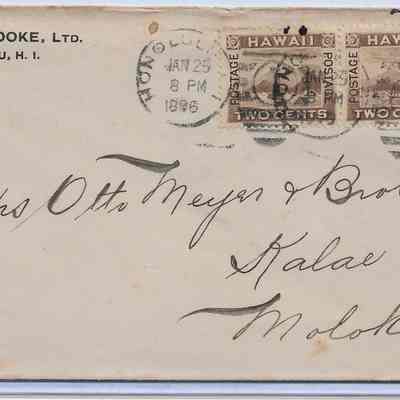 OOKE, LTD.
U, H. I.
HONOLULU
JAN 25
8 PM
1896
HAWAII
POSTAGE
POSTAGE
TWO CENTS
HAWAII
POSTAGE
TWO C
rs Otto Meyer & Bro
Kalae
Molok